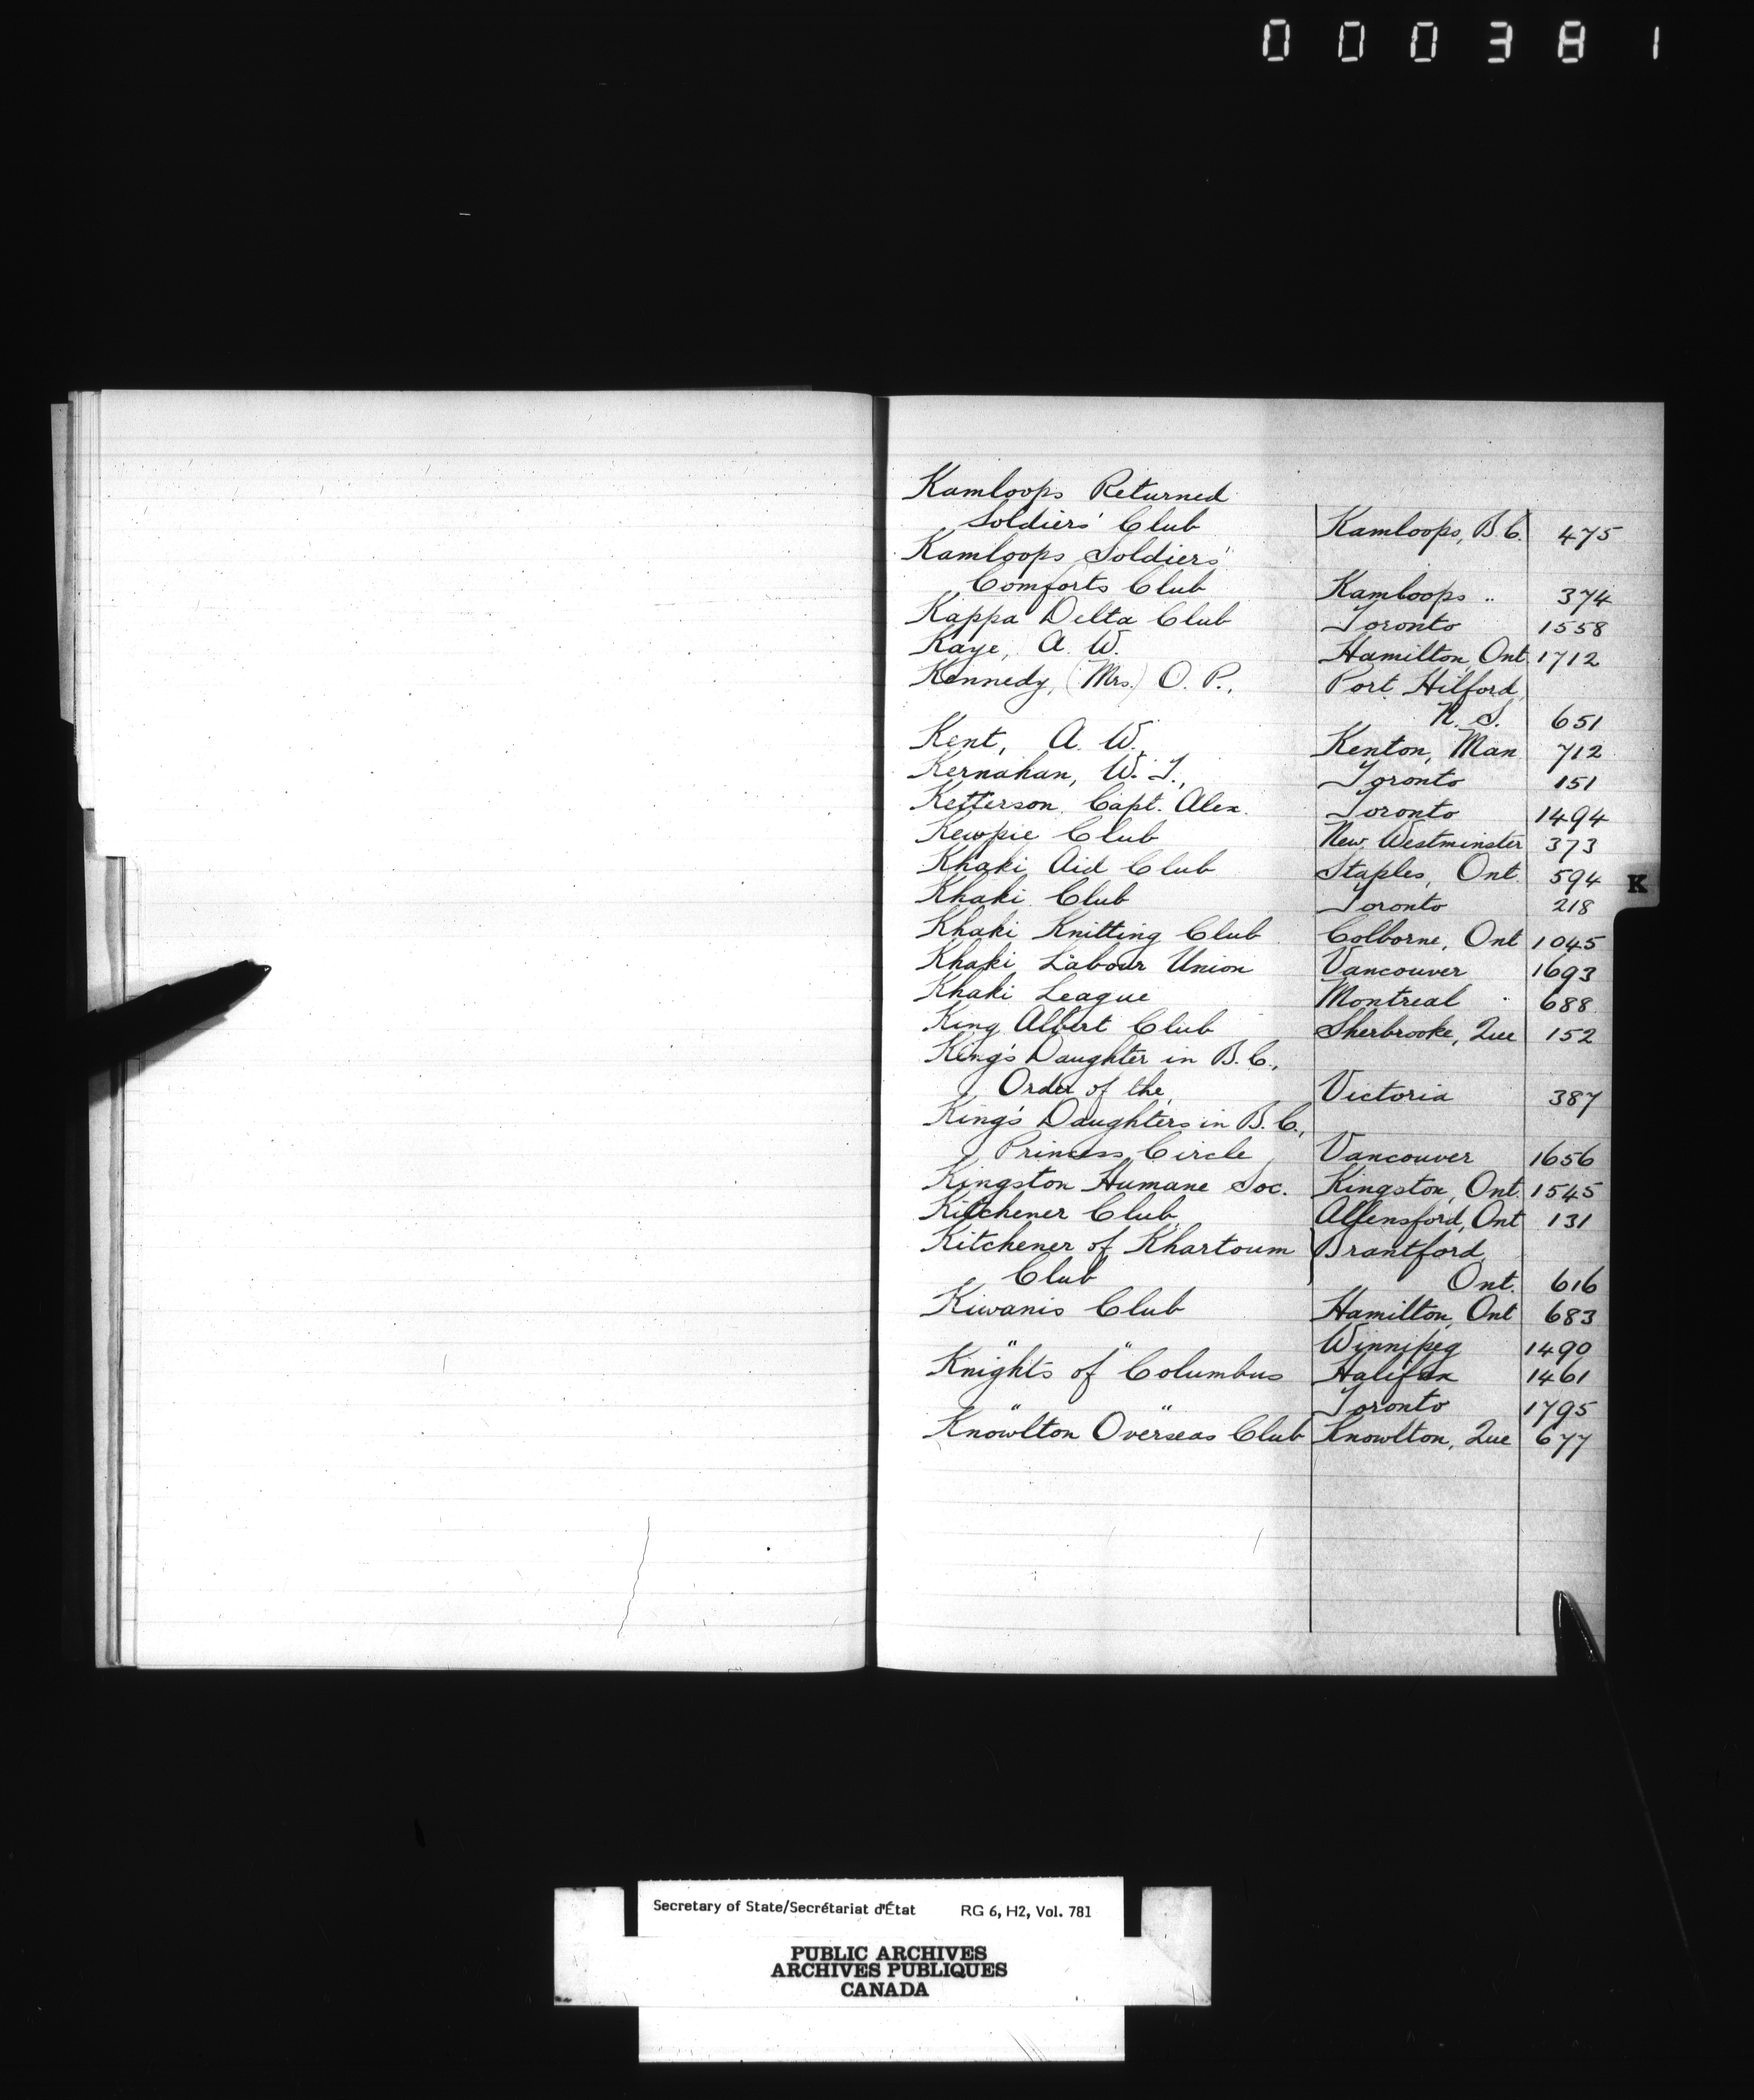 000381
Kamloops Returned
Soldiers' Club Kamloops, B.C. 475
Kamloops Soldiers'
Comforts Club Kamloops " 374
Kappa Delta Club Toronto 1558
Kaye, A. W. Hamilton, Ont 1712
Kennedy, (Mrs.) O. P., Port Hilford,
N. S. 651
Kent, A. W., Kenton, Man 712
Kernahan, W. T., Toronto 151
Ketterson, Capt. Alex. Toronto 1494
Kewpie Club New Westminster 373
Khaki Aid Club Staples, Ont. 594
K
Khaki Club Toronto 218
Khaki Knitting Club Colborne, Ont 1045
Khaki Labour Union Vancouver 1693
Khaki League Montreal 688
King Albert Club Sherbrooke, Que 152
King's Daughter in B.C.,
Order of the, Victoria 387
King's Daughters in B.C.,
Princess Circle, Vancouver 1656
Kingston Humane Soc. Kingston, Ont. 1545
Kitchener Club Ailensford, Ont 131
Kitchener of Khartoum Brantford,
Club Ont. 616
Kiwanis Club Hamilton, Ont 683
" " Winnipeg 1490
Knights of Columbus Halifax 1461
" " Toronto 1795
Knowlton Overseas Club Knowlton, Que 677
Secretary of State/Secrétariat d'État RG 6, H2, Vol. 781
PUBLIC ARCHIVES
ARCHIVES PUBLIQUES
CANADA